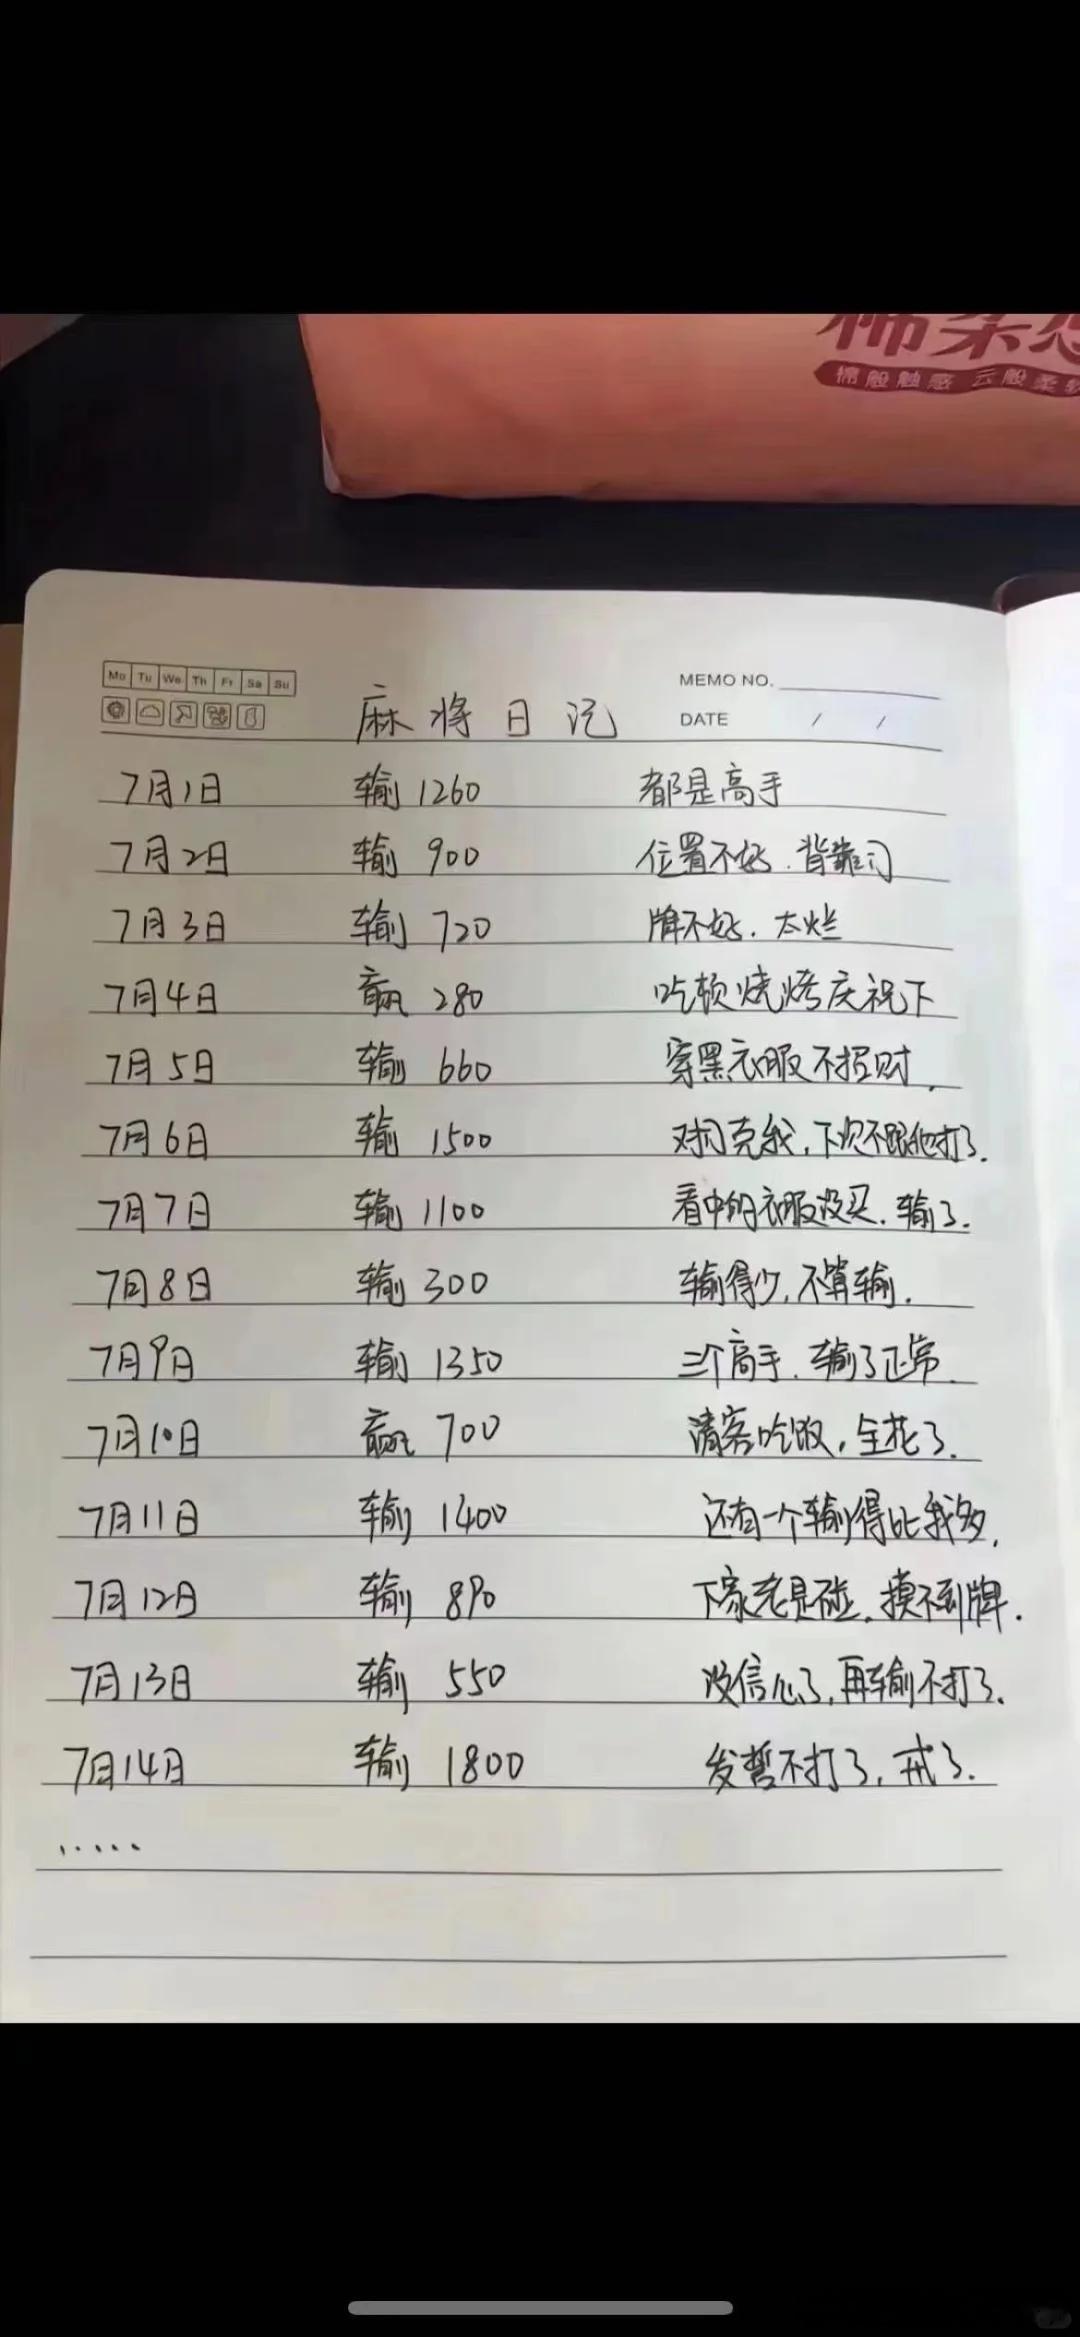 棉柔
棉般触感 云般柔软
Mo Tu We Th Fr Sa Su
MEMO NO.
麻将日记
DATE / /
7月1日 输1260 都是高手
7月2日 输900 位置不好.背靠门
7月3日 输720 牌不好.太烂
7月4日 赢280 吃顿烧烤庆祝下
7月5日 输660 穿黑衣服不招财.
7月6日 输1500 对门克我,下次不跟他打了.
7月7日 输1100 看中的衣服没买.输了.
7月8日 输300 输得少,不算输.
7月9日 输1350 三个高手.输了正常.
7月10日 赢700 请客吃饭,全花了.
7月11日 输1400 还有一个输得比我多.
7月12日 输890 下家老是碰.摸不到牌.
7月13日 输550 没信心了,再输不打了.
7月14日 输1800 发誓不打了,戒了.
.....